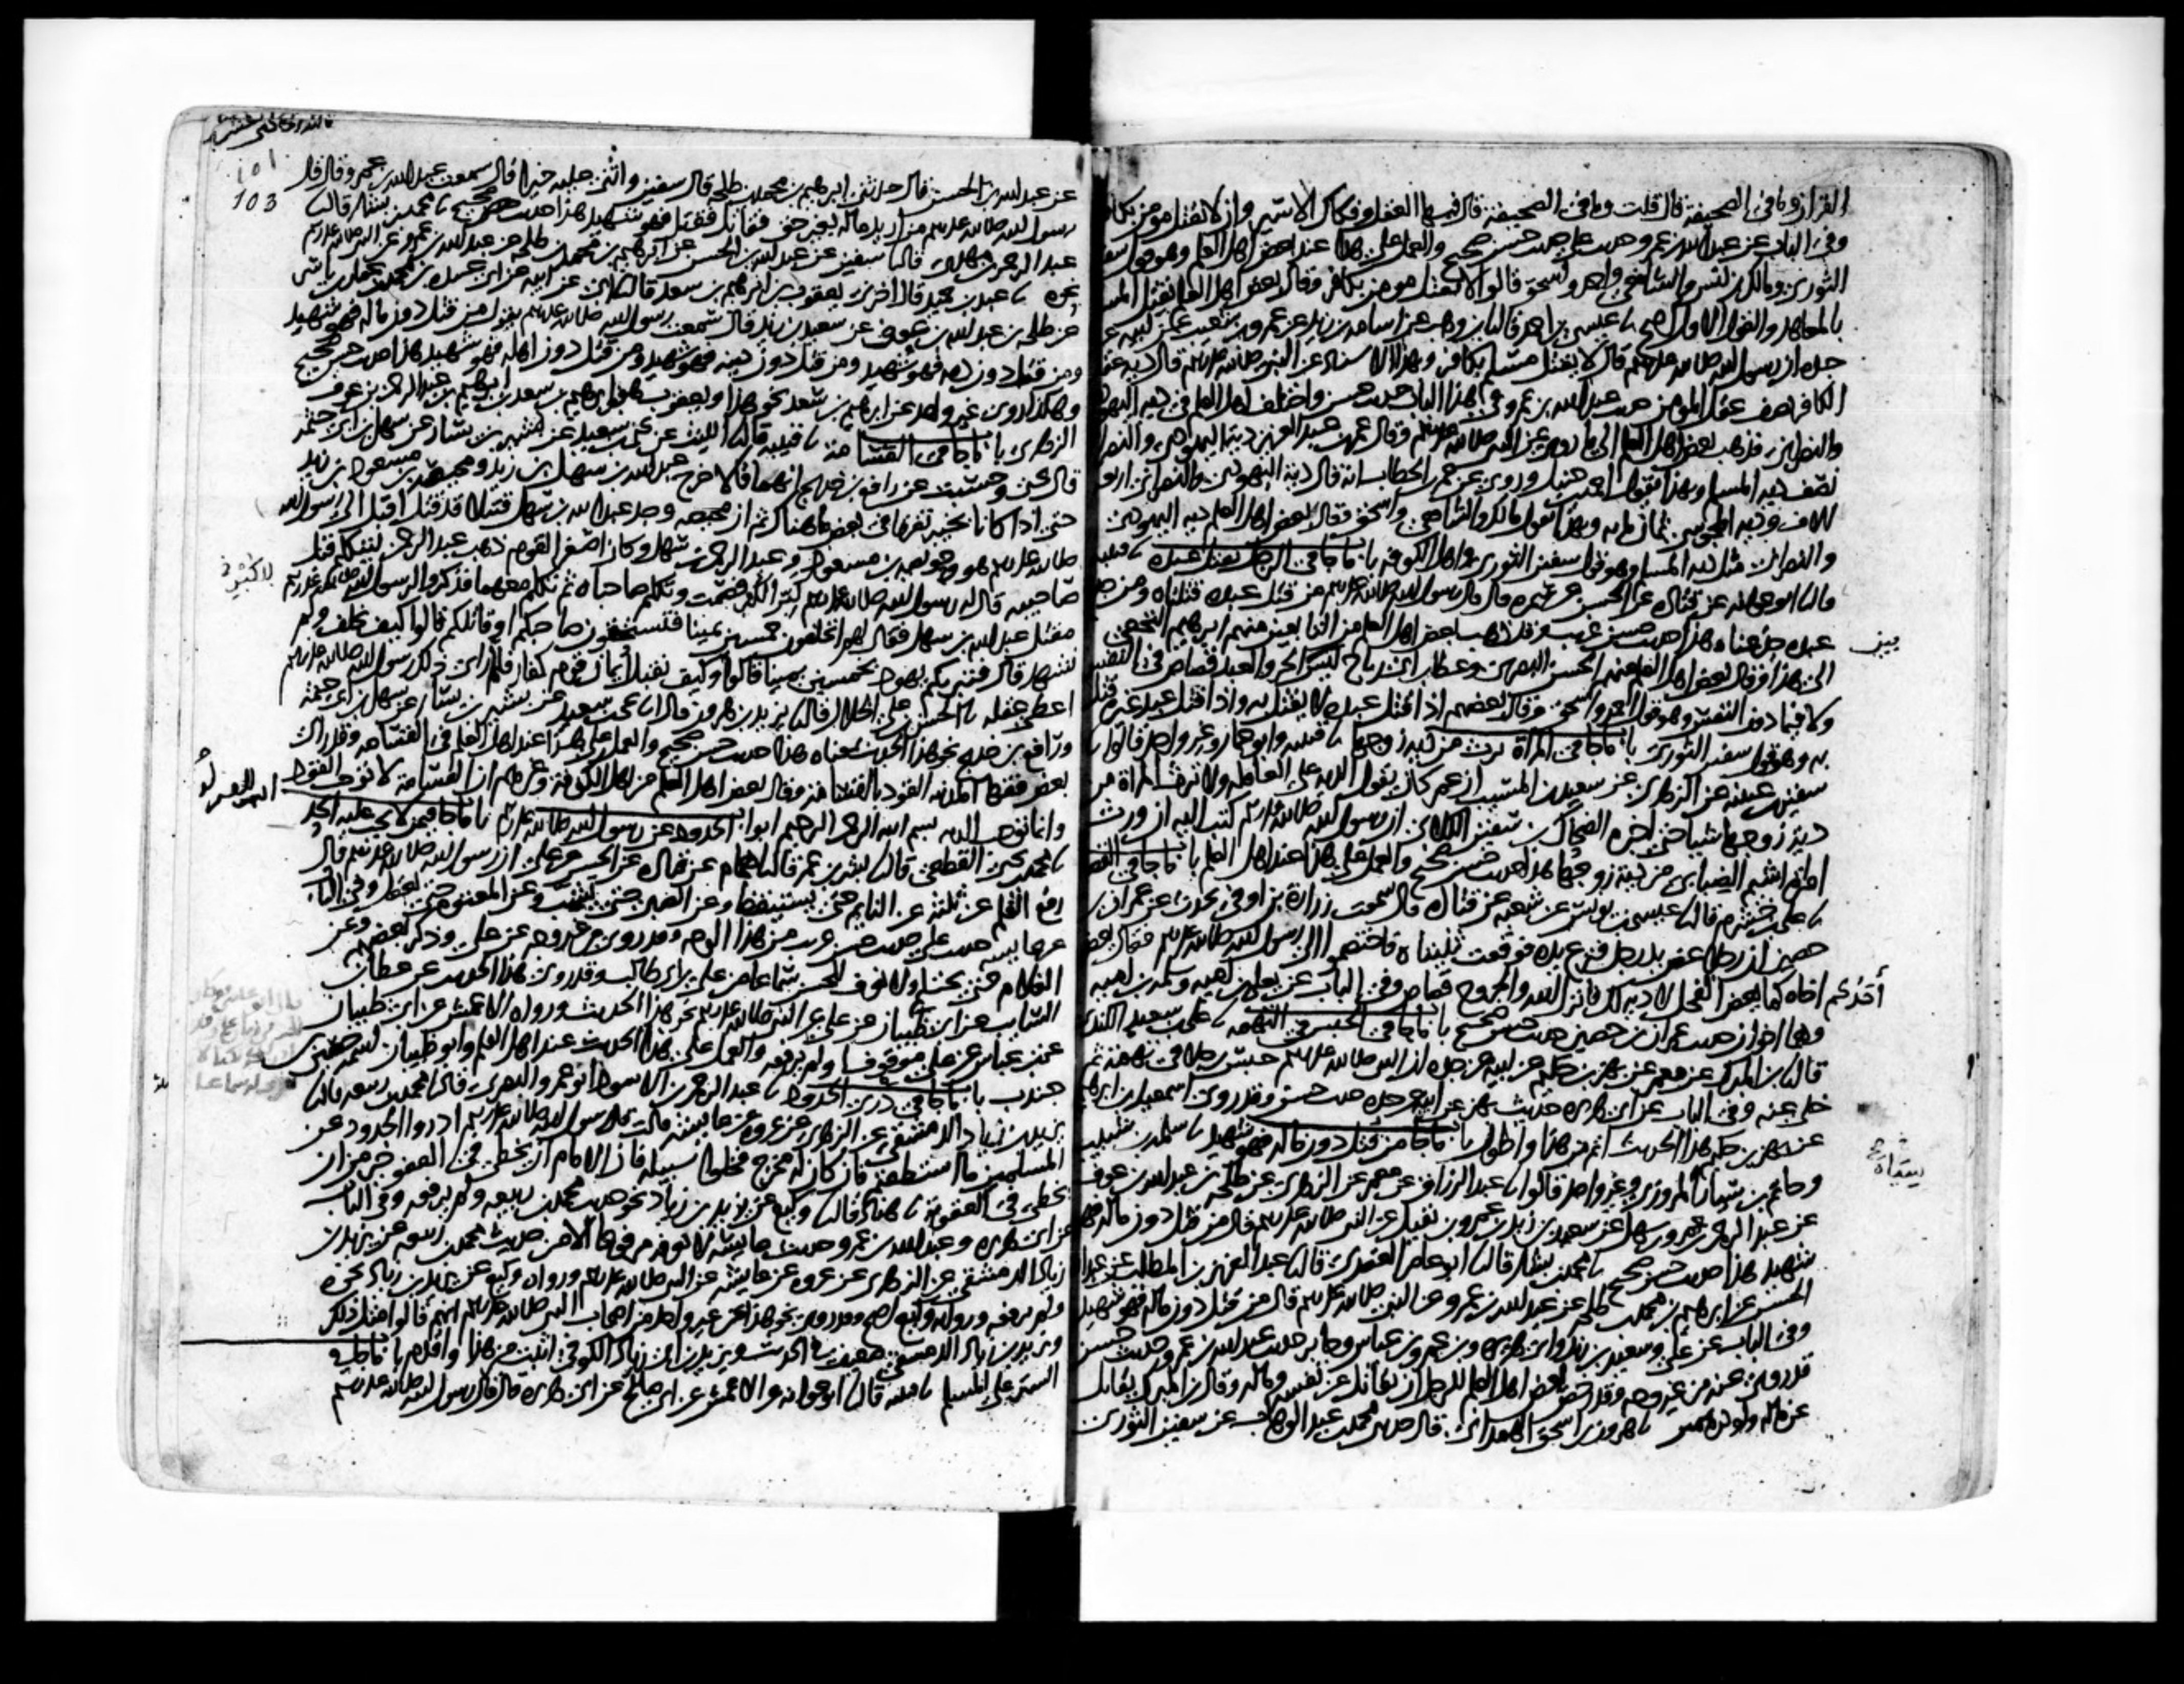 القران وما في الصحيفة قال قلت وما في الصحيفة قال فيها العقل وفكاك الاسير وان لا يقتل مومن بكافر
وفي الباب عن عبد الله بن عمرو حديث علي حديث حسن صحيح والعمل على هذا عند بعض اهل العلم وهو قول سفين
الثوري ومالك بن انس والشافعي واحمد واسحق قالوا لا يقتل مومن بكافر وقال بعض اهل العلم يقتل المسلم
بالمعاهد والقول الاول اصح نا عيسى بن احمد قال نا ابن وهب عن اسامة بن زيد عن عمرو بن شعيب عن ابيه عن
جده ان رسول الله صلى الله عليه وسلم قال لا يقتل مسلم بكافر وبهذا الاسناد عن النبي صلى الله عليه وسلم قال دية عقل
الكافر نصف عقل المومن حديث عبد الله بن عمرو في هذا الباب حديث حسن واختلف اهل العلم في دية اليهودي
والنصراني فذهب بعض اهل العلم الى ما روي عن النبي صلى الله عليه وسلم وقال عمر بن عبد العزيز دية اليهودي والنصراني
نصف دية المسلم وبهذا يقول احمد بن حنبل وروي عن عمر بن الخطاب انه قال دية اليهودي والنصراني اربعة
الاف ودية المجوسي ثمان ماية وبهذا يقول مالك والشافعي واسحق وقال بعض اهل العلم دية اليهودي
والنصراني مثل دية المسلم وهو قول سفين الثوري واهل الكوفة باب ما جا في الرجل يقتل عبده نا قتيبة
قال نا ابو عوانة عن قتادة عن الحسن عن سمرة قال قال رسول الله صلى الله عليه وسلم من قتل عبده قتلناه ومن جدع
عبده جدعناه هذا حديث حسن غريب وقد ذهب بعض اهل العلم من التابعين منهم ابرهيم النخعي
الى هذا وقال بعض اهل العلم منهم الحسن البصري وعطاء بن ابي رباح ليس بين الحر والعبد قصاص في النفس
ولا فيما دون النفس وهو قول احمد واسحق وقال بعضهم اذا قتل عبده لا يقتل به واذا قتل عبد غيره قتل
به وهو قول سفين الثوري باب ما جا في المراة ترث من دية زوجها نا قتيبة وابو عمار وغير واحد قالوا نا
سفين بن عيينة عن الزهري عن سعيد بن المسيب ان عمر كان يقول الدية على العاقلة ولا ترث المراة من
دية زوجها شيا حتى اخبره الضحاك بن سفين الكلابي ان رسول الله صلى الله عليه وسلم كتب اليه ان ورث
امراة اشيم الضبابي من دية زوجها هذا حديث حسن صحيح والعمل على هذا عند اهل العلم باب ما جا في القصاص
نا علي بن خشرم قال نا عيسى بن يونس عن شعبة عن قتادة قال سمعت زرارة بن اوفى يحدث عن عمران بن
حصين ان رجلا عض يد رجل فنزع يده فوقعت ثنيتاه فاختصموا الى رسول الله صلى الله عليه وسلم فقال يعض
احدكم اخاه كما يعض الفحل لا دية لك فانزل الله والجروح قصاص وفي الباب عن يعلى بن امية وسلمة بن امية
وهما اخوان حديث عمران بن حصين حديث حسن صحيح باب ما جا في الحبس في التهمة نا علي بن سعيد الكندي
قال نا ابن المبارك عن معمر عن بهز بن حكيم عن ابيه عن جده ان النبي صلى الله عليه وسلم حبس رجلا في تهمة ثم
خلى عنه وفي الباب عن ابي هريرة حديث بهز عن ابيه عن جده حديث حسن وقد روى اسمعيل بن ابرهيم
عن بهز بن حكيم هذا الحديث اتم من هذا واطول باب ما جا من قتل دون ماله فهو شهيد نا سلمة بن شبيب
وحاتم بن سياه المروزي وغير واحد قالوا نا عبد الرزاق عن معمر عن الزهري عن طلحة بن عبد الله بن عوف
عن عبد الرحمن بن عمرو بن سهل عن سعيد بن زيد بن عمرو بن نفيل عن النبي صلى الله عليه وسلم قال من قتل دون ماله فهو
شهيد هذا حديث حسن صحيح نا محمد بن بشار قال نا ابو عامر العقدي قال نا عبد العزيز بن المطلب عن عبد الله
بن الحسن عن ابرهيم بن محمد بن طلحة عن عبد الله بن عمرو عن النبي صلى الله عليه وسلم قال من قتل دون ماله فهو شهيد
وفي الباب عن علي وسعيد بن زيد وابي هريرة وابن عمر وابن عباس وجابر حديث عبد الله بن عمرو حديث حسن
قد روي عنه من غير وجه وقد رخص بعض اهل العلم للرجل ان يقاتل عن نفسه وماله وقال ابن المبارك يقاتل
عن ماله ولو درهمين نا هرون بن اسحق الهمداني قال حدثني محمد بن عبد الوهاب عن سفين الثوري
بين
101
103
عن عبد الله بن الحسن قال حدثني ابرهيم بن محمد بن طلحة قال سفين واثنى عليه خيرا قال سمعت عبد الله بن عمرو قال قال
رسول الله صلى الله عليه وسلم من اريد ماله بغير حق فقاتل فقتل فهو شهيد هذا حديث حسن صحيح نا محمد بن بشار قال نا
عبد الرحمن بن مهدي قال نا سفين عن عبد الله بن الحسن عن ابرهيم بن محمد بن طلحة عن عبد الله بن عمرو عن النبي صلى الله عليه وسلم
نحوه نا عبد بن حميد قال اخبرني يعقوب بن ابرهيم بن سعد قال نا ابي عن ابيه عن ابي عبيدة بن محمد بن عمار بن ياسر
عن طلحة بن عبد الله بن عوف عن سعيد بن زيد قال سمعت رسول الله صلى الله عليه وسلم يقول من قتل دون ماله فهو شهيد
ومن قتل دون دمه فهو شهيد ومن قتل دون دينه فهو شهيد ومن قتل دون اهله فهو شهيد هذا حديث حسن صحيح
وهكذا روى غير واحد عن ابرهيم بن سعد نحو هذا ويعقوب هو ابن ابرهيم بن سعد بن ابرهيم بن عبد الرحمن بن عوف
الزهري باب ما جا في القسامة نا قتيبة قال نا الليث عن يحيى بن سعيد عن بشير بن يسار عن سهل بن ابي حثمة
قال يحيى وحسبت عن رافع بن خديج انهما قالا خرج عبد الله بن سهل بن زيد ومحيصة بن مسعود بن زيد
حتى اذا كانا بخيبر تفرقا في بعض ما هناك ثم ان محيصة وجد عبد الله بن سهل قتيلا قد قتل اقبل الى رسول الله
صلى الله عليه وسلم هو وحويصة بن مسعود وعبد الرحمن بن سهل وكان اصغر القوم ذهب عبد الرحمن ليتكلم قبل
صاحبيه قال له رسول الله صلى الله عليه وسلم كبر الكبر فصمت وتكلم صاحباه ثم تكلم معهما فذكروا لرسول الله صلى الله عليه وسلم
مقتل عبد الله بن سهل فقال لهم اتحلفون خمسين يمينا فتستحقون صاحبكم او قاتلكم قالوا كيف نحلف ولم
نشهد قال فتبريكم يهود بخمسين يمينا قالوا وكيف نقبل ايمان قوم كفار فلما راى ذلك رسول الله صلى الله عليه وسلم
اعطى عقله نا الحسن بن علي الخلال قال نا يزيد بن هرون قال انا يحيى بن سعيد عن بشير بن يسار عن سهل بن ابي حثمة
ورافع بن خديج نحو هذا الحديث بمعناه هذا حديث حسن صحيح والعمل على هذا عند اهل العلم في القسامة وقد راى
بعض فقها المدينة القود بالقسامة وقال بعض اهل العلم من اهل الكوفة وغيرهم ان القسامة لا توجب القود
وانما توجب الدية بسم الله الرحمن الرحيم ابواب الحدود عن رسول الله صلى الله عليه وسلم باب ما جا فيمن لا يجب عليه الحد
نا محمد بن يحيى القطعي قال نا بشر بن عمر قال نا همام عن قتادة عن الحسن عن علي ان رسول الله صلى الله عليه وسلم قال
رفع القلم عن ثلثة عن النايم حتى يستيقظ وعن الصبي حتى يشب وعن المعتوه حتى يعقل وفي الباب
عن عايشة حديث علي حديث حسن غريب من هذا الوجه وقد روي من غير وجه عن علي وذكر بعضهم وعن
الغلام حتى يحتلم ولا نعرف للحسن سماعا من علي بن ابي طالب وقد روي هذا الحديث عن عطاء بن
السايب عن ابي ظبيان عن علي عن النبي صلى الله عليه وسلم نحو هذا الحديث ورواه الاعمش عن ابي ظبيان
عن ابن عباس عن علي موقوفا ولم يرفعه والعمل على هذا الحديث عند اهل العلم وابو ظبيان اسمه حصين بن
جندب باب ما جا في درء الحدود نا عبد الرحمن بن الاسود ابو عمرو البصري قال نا محمد بن ربيعة قال نا
يزيد بن زياد الدمشقي عن الزهري عن عروة عن عايشة قالت قال رسول الله صلى الله عليه وسلم ادروا الحدود عن
المسلمين ما استطعتم فان كان له مخرج فخلوا سبيله فان الامام ان يخطي في العفو خير من ان
يخطي في العقوبة نا هناد قال نا وكيع عن يزيد بن زياد نحو حديث محمد بن ربيعة ولم يرفعه وفي الباب
عن ابي هريرة وعبد الله بن عمرو حديث عايشة لا نعرفه مرفوعا الا من حديث محمد بن ربيعة عن يزيد بن
زياد الدمشقي عن الزهري عن عروة عن عايشة عن النبي صلى الله عليه وسلم ورواه وكيع عن يزيد بن زياد نحوه
ولم يرفعه ورواية وكيع اصح وقد روي نحو هذا عن غير واحد من اصحاب النبي صلى الله عليه وسلم انهم قالوا مثل ذلك
ويزيد بن زياد الدمشقي ضعيف في الحديث ويزيد بن ابي زياد الكوفي اثبت من هذا واقدم باب ما جا في
الستر على المسلم نا قتيبة قال نا ابو عوانة عن الاعمش عن ابي صالح عن ابي هريرة قال قال رسول الله صلى الله عليه وسلم